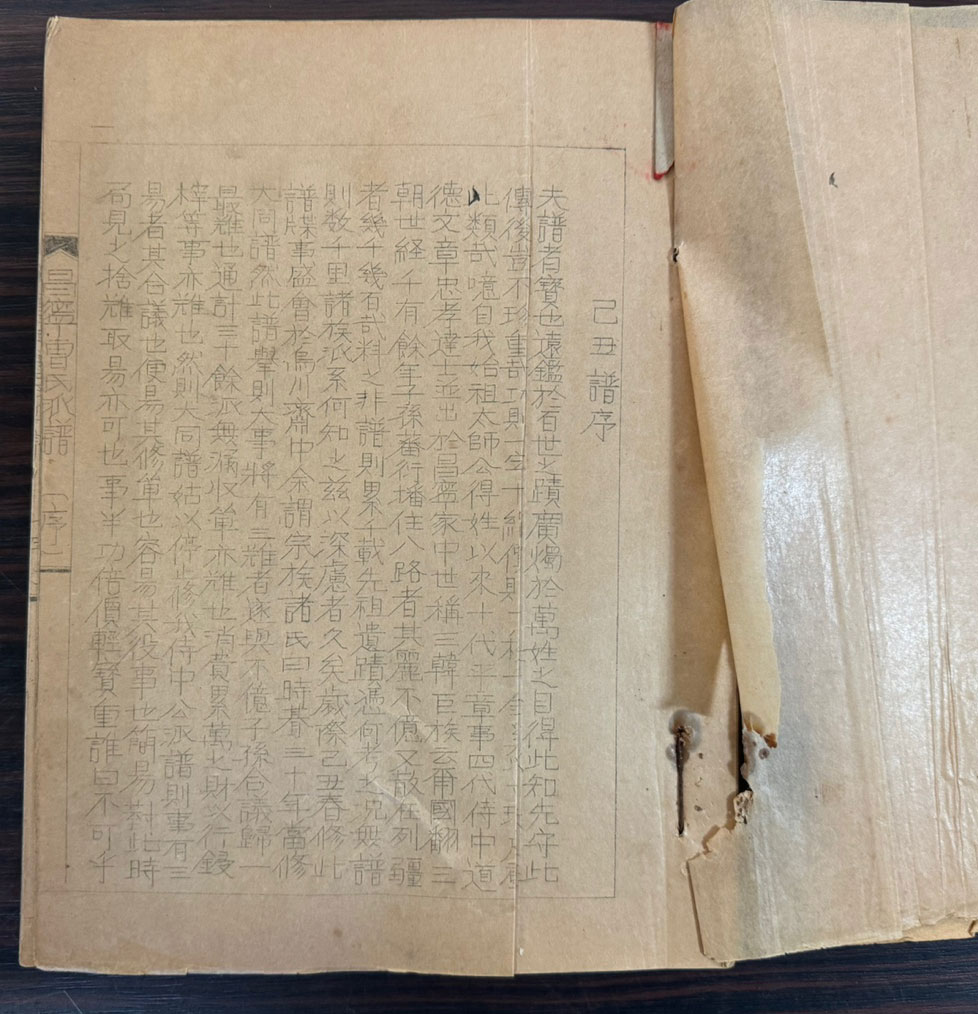 己丑譜序
夫譜者寶也遠鑑於百世之蹟廣燭於萬姓之目得此知先守此
傳後豈不珍重哉功則一字十
此類哉噫自我始祖太師公得姓以來十代平章事四代侍中道
德文章忠孝達士並出於昌寧家中世稱三韓巨族云爾國翻三
朝世経千有餘年子孫蕃衍播住八路者其麗不億又散在列疆
者幾千幾百哉料之非譜則累千載先祖遺蹟憑何考之况無譜
則数千里諸族派系何知之茲以深慮者久矣歲際己丑春修此
譜牒事盛會於烏川齋中余謂宗族諸氏曰時暮三十年當修
大同譜然此譜擧則大事將有三難者遂與不億子孫合議歸一
最難也通計三十餘派無漏收單亦難也消費累萬之財以行鋟
梓等事亦難也然則大同譜姑以停止修我侍中公派譜則事有三
易者其合議也便易其修單也容易其役事也簡易對此時
局見之捨難取易亦可也事半功倍價輕寶重誰曰不可乎
昌寧曺氏派譜
序一